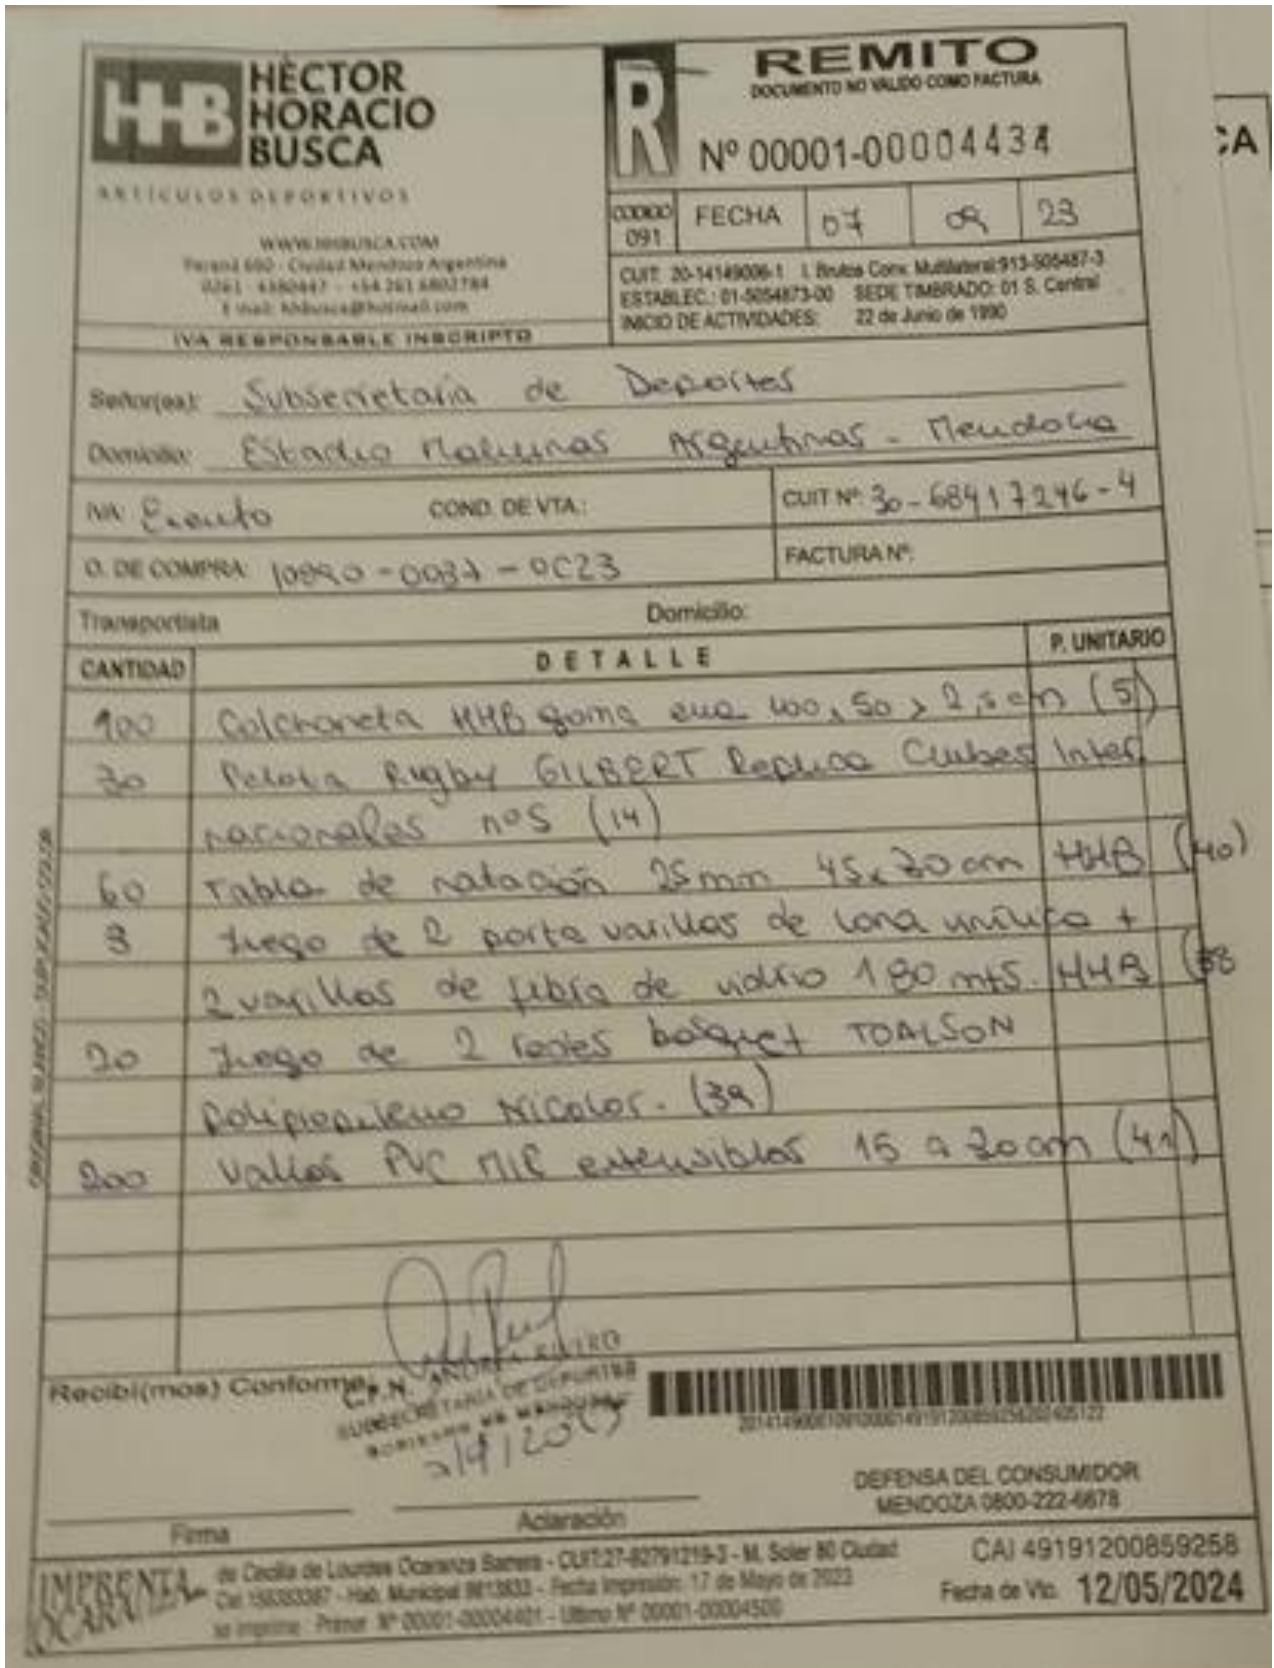 HHB HÉCTOR
HORACIO
BUSCA
ARTÍCULOS DEPORTIVOS
WWW.HHBUSCA.COM
Paraná 690 - Ciudad Mendoza Argentina
0261 - 4380447 - +54 261 6802784
E mail: hhbusca@hotmail.com
IVA RESPONSABLE INSCRIPTO
R
REMITO
DOCUMENTO NO VALIDO COMO FACTURA
Nº 00001-00004434
CODIGO 091 FECHA 07 09 23
CUIT: 20-14149006-1 I. Brutos Conv. Multilateral:913-505487-3
ESTABLEC.: 01-5054873-00 SEDE TIMBRADO: 01 S. Central
INICIO DE ACTIVIDADES: 22 de Junio de 1990
CA
Señor(es): Subsecretaría de Deportes
Domicilio: Estadio Malvinas Argentinas - Mendoza
IVA: Exento COND. DE VTA.: CUIT Nº: 30-68417246-4
O. DE COMPRA: 10890-0037-OC23 FACTURA Nº:
Transportista Domicilio:
CANTIDAD DETALLE P. UNITARIO
100 Colchoneta HHB goma eva 100x50x2,5cm (5)
30 Pelota Rugby GILBERT Replica Clubes Inter
nacionales nº5 (14)
60 Tabla de natación 25mm 45x30cm HHB (40)
3 Juego de 2 porta varillas de lona vinilica +
2 varillas de fibra de vidrio 180 mts. HHB (38
20 Juego de 2 redes basquet TOALSON
Polipropileno Nicolor. (39)
200 Vallas PVC MIR extensibles 15 a 30cm (41)
ORIGINAL BLANCO; DUPLICADO COLOR
Recibí(mos) Conforme
SUBSECRETARÍA DE DEPORTES
201414900610910000149191200859258202405122
DEFENSA DEL CONSUMIDOR
MENDOZA 0800-222-6678
Firma Aclaración
IMPRENTA
OCARANZA
de Cecilia de Lourdes Ocaranza Barrera - CUIT:27-92791219-3 - M. Soler 80 Ciudad
Hab. Municipal - Fecha Impresión: 17 de Mayo de 2023
se imprime - Primer Nº 00001-00004401 - Ultimo Nº 00001-00004500
CAI 49191200859258
Fecha de Vto. 12/05/2024